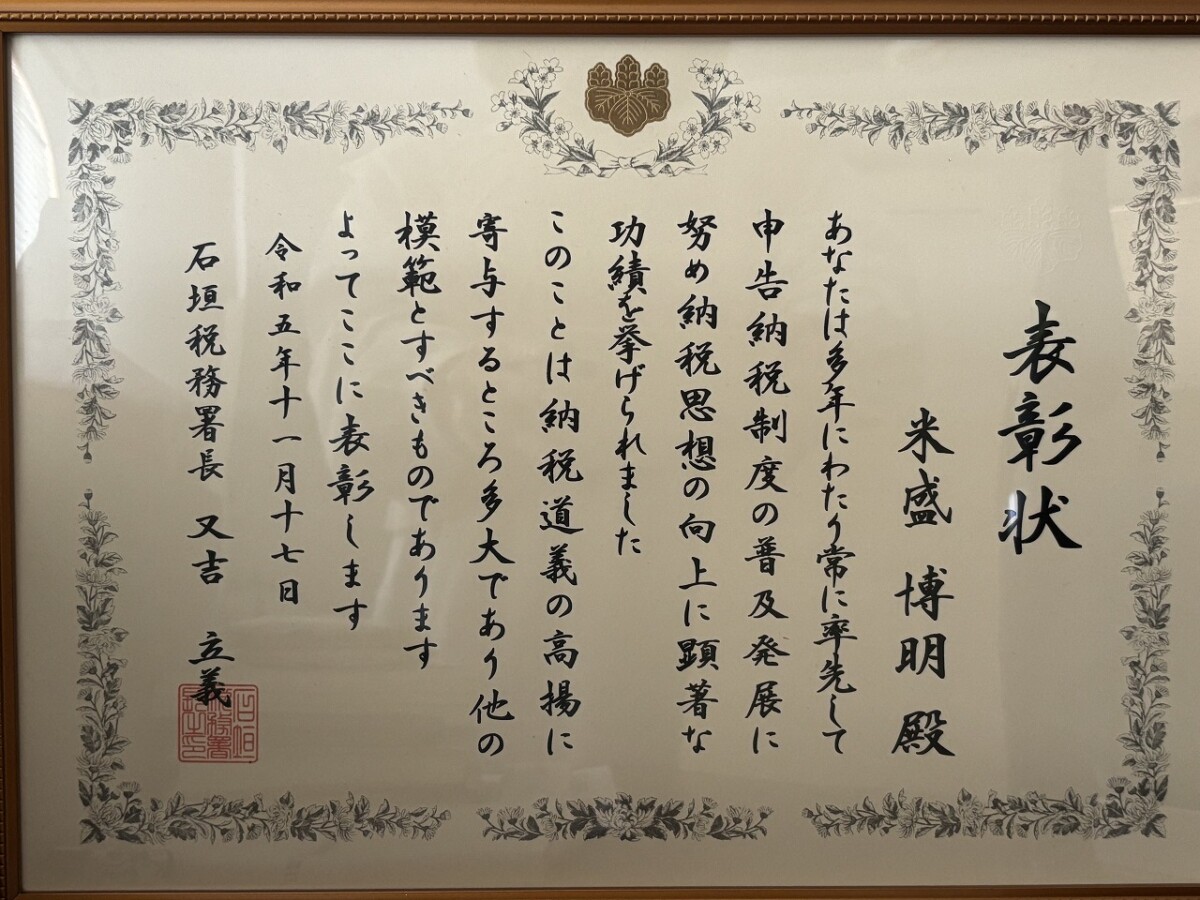 表彰状
米盛 博明 殿
あなたは多年にわたり常に率先して
申告納税制度の普及発展に
努め納税思想の向上に顕著な
功績を挙げられました
このことは納税道義の高揚に
寄与するところ多大であり他の
模範とすべきものであります
よってここに表彰します
令和五年十一月十七日
石垣税務署長 又吉 立義
石垣税務署長之印